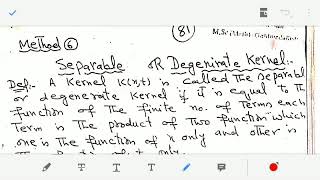 (81)
M.Sc (Maths)
Method ⑥
Separable OR Degenirate Kernel:-
Def:- A Kernel K(x,t) is called the separabl
or degenerate Kernel if it is equal to the
function of the finite no. of terms each
term is the product of two function which
one is the function of x only and other is
only